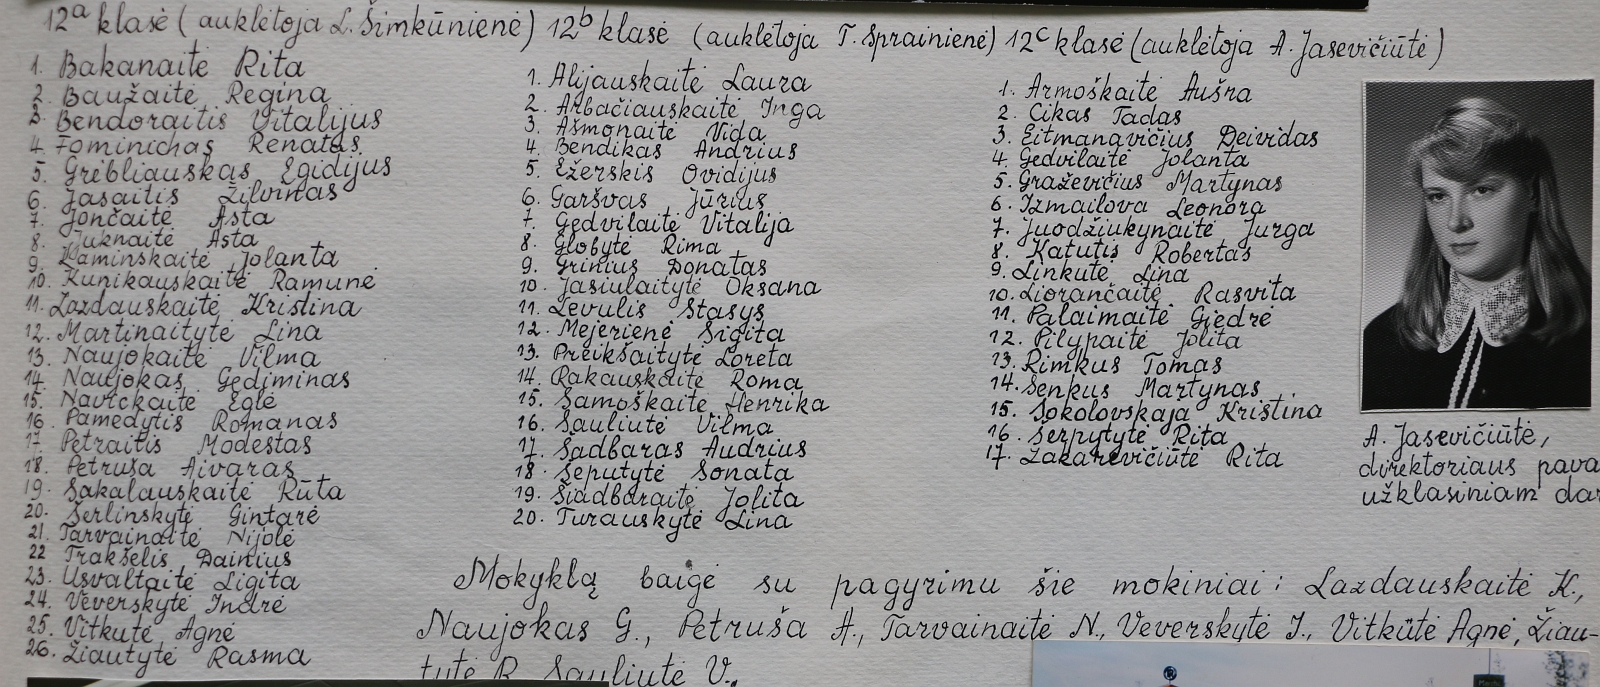 12ᵃ klasė (auklėtoja L. Šimkūnienė)
1. Bakanaitė Rita
2. Baužaitė Regina
3. Bendoraitis Vitalijus
4. Fominichas Renatas
5. Grebliauskas Egidijus
6. Jasaitis Žilvinas
7. Jončaitė Asta
8. Juknaitė Asta
9. Kaminskaitė Jolanta
10. Kunikauskaitė Ramunė
11. Lazdauskaitė Kristina
12. Martinaitytė Lina
13. Naujokaitė Vilma
14. Naujokas Gediminas
15. Navickaitė Eglė
16. Pamedytis Romanas
17. Petraitis Modestas
18. Petruša Aivaras
19. Sakalauskaitė Rūta
20. Serlinskytė Gintarė
21. Tarvainaitė Nijolė
22 Trakšelis Dainius
23. Usvaltaitė Ligita
24. Veverskytė Indrė
25. Vitkutė Agnė
26. Žiautytė Rasma
12ᵇ klasė (auklėtoja T. Sprainienė)
1. Alijauskaitė Laura
2. Arbačiauskaitė Inga
3. Ašmonaitė Vida
4. Bendikas Andrius
5. Ežerskis Ovidijus
6. Garšvas Jūrius
7. Gedvilaitė Vitalija
8. Globytė Rima
9. Grinius Donatas
10. Jasiulaitytė Oksana
11. Levulis Stasys
12. Mejerienė Sigita
13. Preikšaitytė Loreta
14. Rakauskaitė Roma
15. Samoškaitė Henrika
16. Sauliutė Vilma
17. Šadbaras Audrius
18. Šeputytė Sonata
19. Šiadbaraitė Jolita
20. Turauskytė Lina
12ᶜ klasė (auklėtoja A. Jasevičiūtė)
1. Armoškaitė Aušra
2. Cikas Tadas
3. Eitmanavičius Deividas
4. Gedvilaitė Jolanta
5. Graževičius Martynas
6. Izmailova Leonora
7. Juodžiukynaitė Jurga
8. Katutis Robertas
9. Linkutė Lina
10. Liorančaitė Rasvita
11. Palaimaitė Giedrė
12. Pilypaitė Jolita
13. Rimkus Tomas
14. Senkus Martynas
15. Sokolovskaja Kristina
16. Šerpytytė Rita
17. Zakarevičiūtė Rita
A. Jasevičiūtė,
direktoriaus pava
užklasiniam dar
Mokyklą baigė su pagyrimu šie mokiniai: Lazdauskaitė K.,
Naujokas G., Petruša A., Tarvainaitė N., Veverskytė I., Vitkūtė Agnė, Žiau-
tytė R. Sauliutė V.,